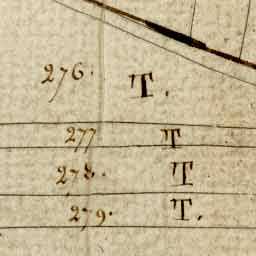 276. T.
277 T
278. T
279. T.